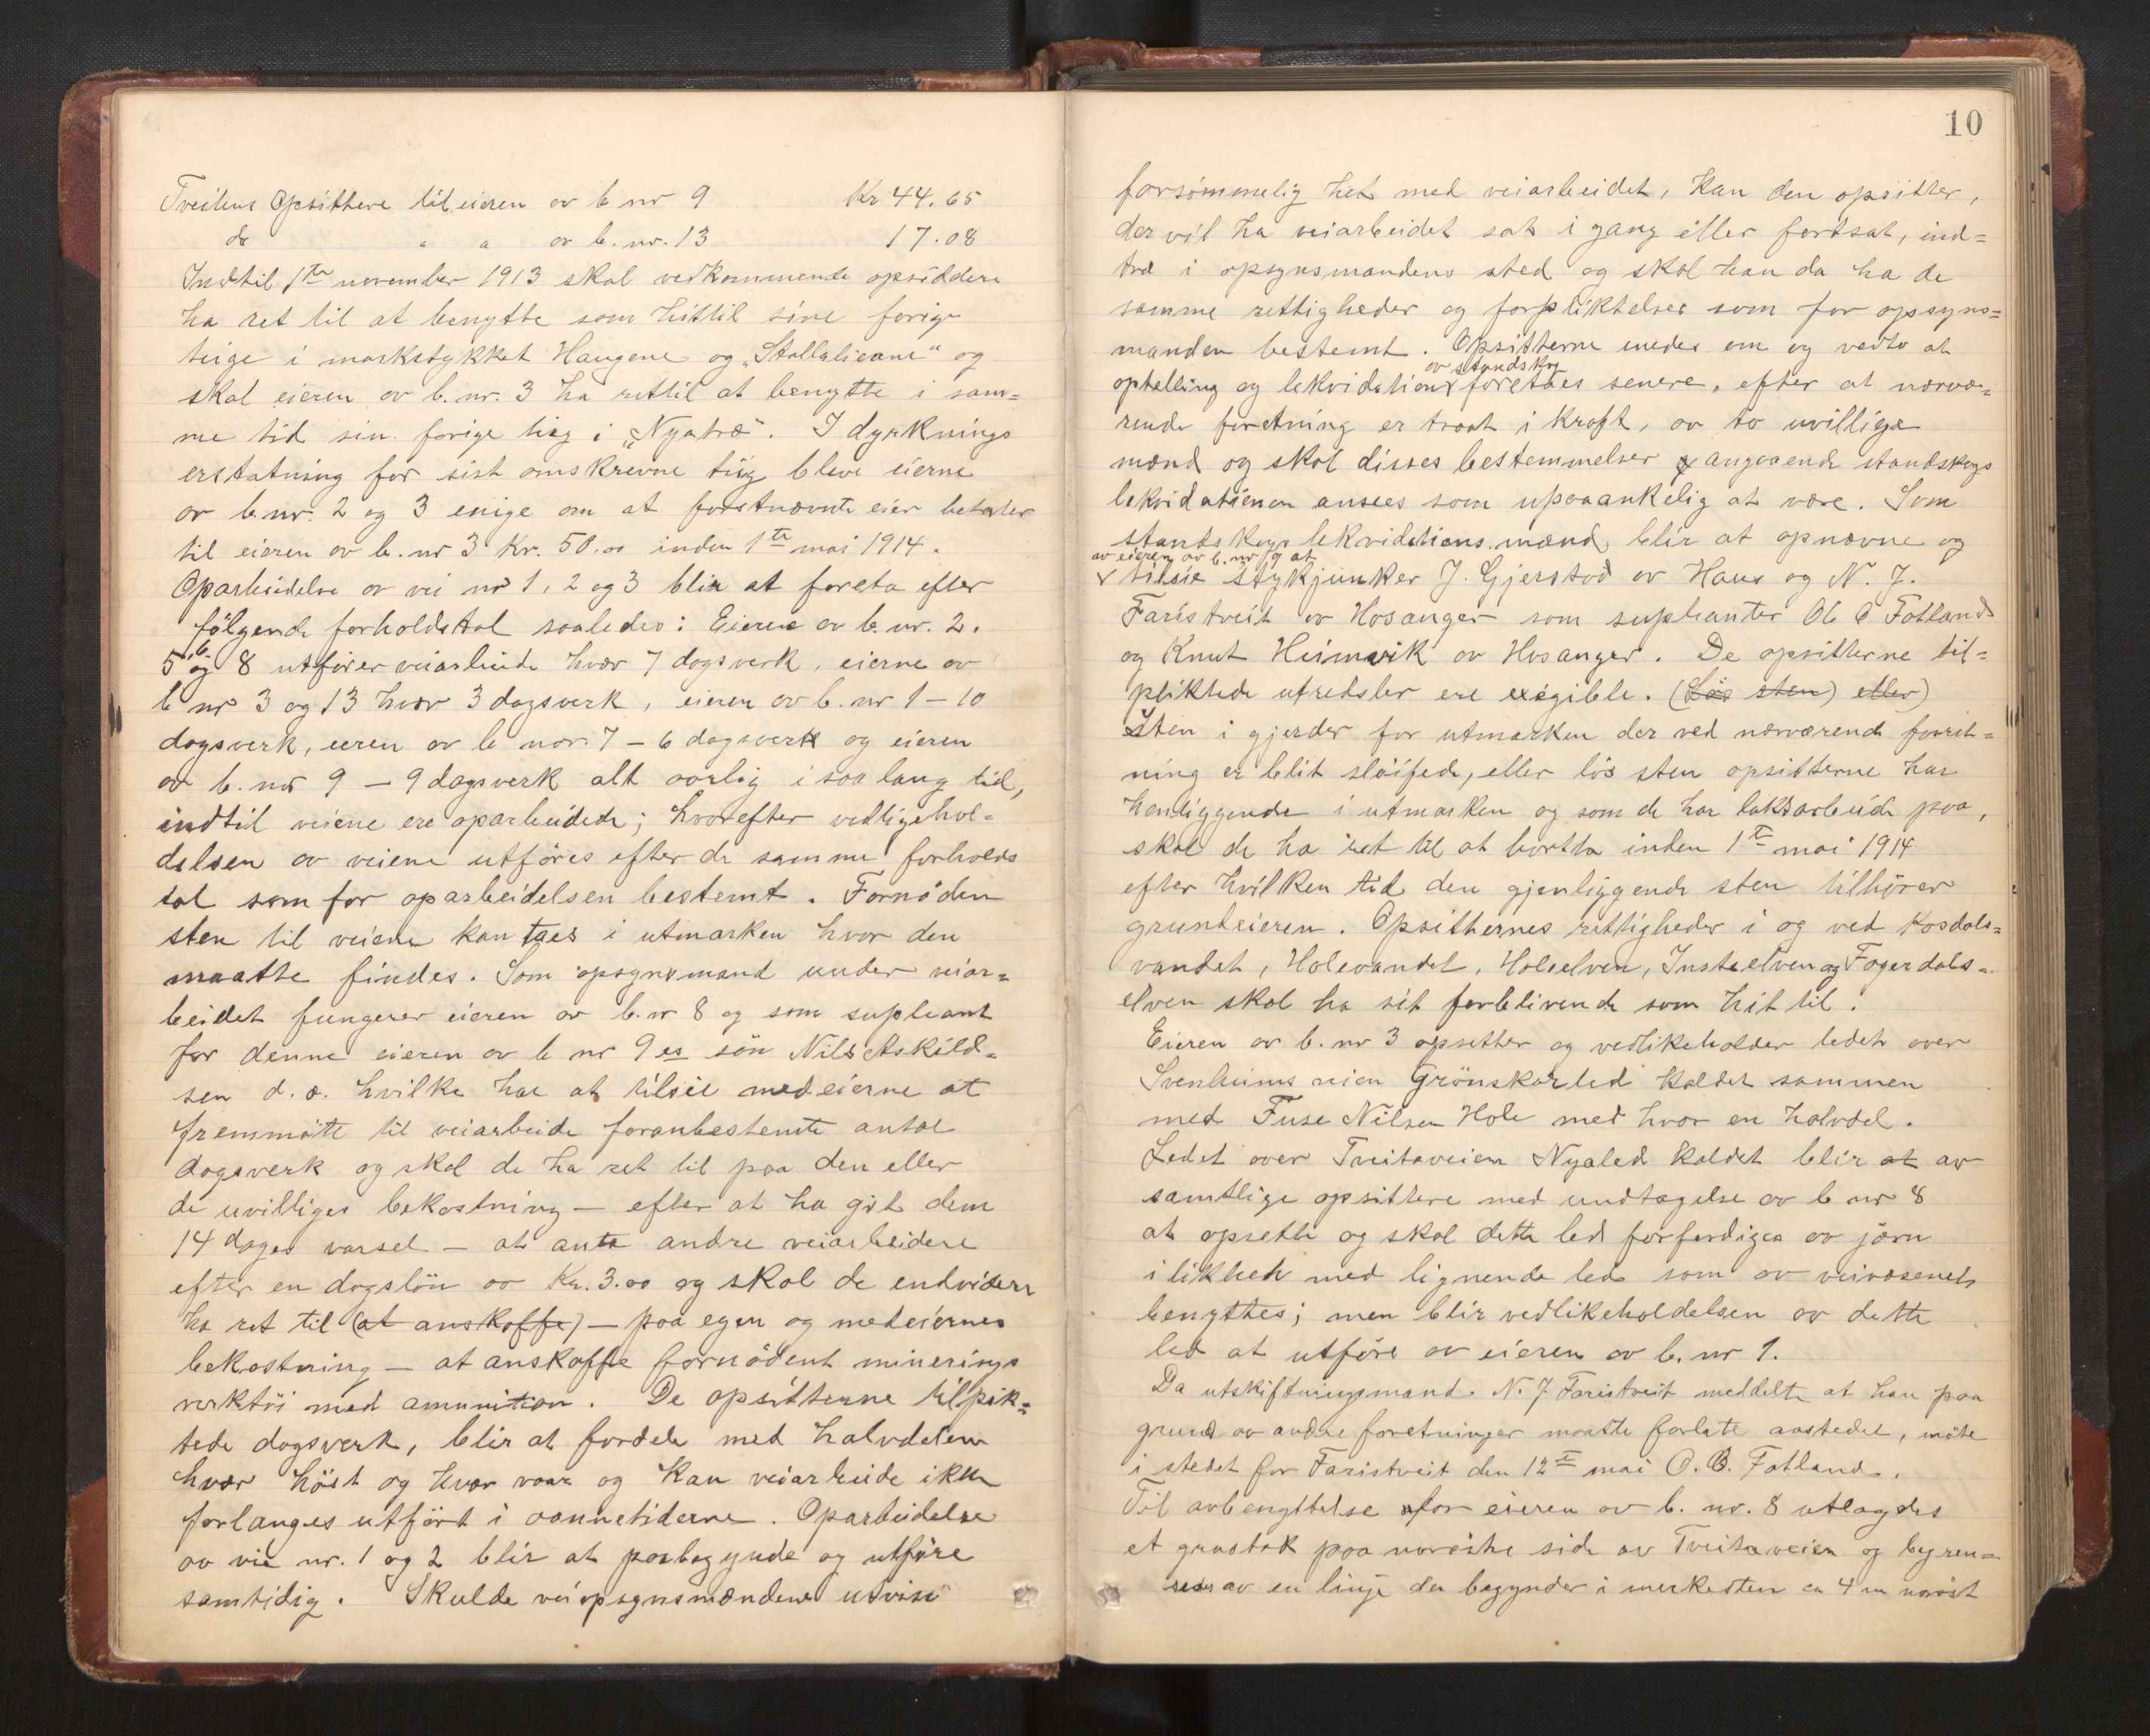 Tveitens Opsittere til eieren av b nr 9 Kr 44.65
do " " av b. nr. 13 17.08
Indtil 1te november 1913 skal vedkommende opsiddere
ha ret til at benytte som hittil sine forige
teige i markstykket Haugene og „Stallalieane" og
skal eieren av b. nr. 3 ha ret til at benytte i sam=
me tid sin forige teig i „Nyatræ". I dyrknings
erstatning for sist omskrevne teig bleve eierne
av b.nr. 2 og 3 enige om at førstnævnte eier betaler
til eieren av b. nr 3 Kr. 50.00 inden 1te mai 1914.
Oparbeidelse av vei nr 1, 2 og 3 blir at foreta efter
følgende forholdstal saaledes: Eierne av b. nr. 2.
5 6 og 8 utfører veiarbeide hvær 7 dagsverk, eierne av
b nr 3 og 13 hvær 3 dagsverk, eieren av b. nr 1 – 10
dagsverk, eeren av b nor. 7 – 6 dagsverk og eieren
av b. nr 9 – 9 dagsverk alt aarlig i saa lang tid,
indtil veiene ere oparbeidede; hvorefter vedligehol=
delsen av veiene utføres efter de samme forholds
tal som for oparbeidelsen bestemt. Fornøden
sten til veiene kan taes i utmarken hvor den
maatte findes. Som opsynsmand under veiar=
beidet fungerer eieren av b. nr 8 og som supleant
for denne eieren av b nr 9 es søn Nils Askild=
sen d. æ. hvilke har at tilsee medeierne at
fremmøtte til veiarbeide foranbestemte antal
dagsverk og skal de ha ret til paa den eller
de uvilliges bekostning – efter at ha git dem
14 dages varsel – at anta andre veiarbeidere
efter en dagsløn av Kr. 3.00 og skal de endvidere
ha ret til (at anskaffe) – paa egen og medeiernes
bekostning – at anskaffe fornødent minerings
verktøi med amunition. De opsitterne tilpik=
tede dagsverk, blir at fordele med halvdelen
hvær høst og hvær vaar og kan veiarbeide ikke
forlanges utført i aannetiderne. Oparbeidelse
av vie nr. 1 og 2 blir at paabegynde og utføre
samtidig. Skulde veiopsynsmændene utvise
10
forsømmelig het med veiarbeidet, kan den opsitter,
der vil ha veiarbeidet sat i gang eller fortsat, ind=
træ i opsynsmandens sted og skal han da ha de
samme rettigheder og forpliktelser som for opsyns=
manden bestemt. Opsitterne enedes om og vedto at
av standskog
optelling og lekvidation foretaes senere, efter at nærvæ=
rende forretning er traat i kraft, av to uvillige
mænd og skal disses bestemmelser angaaende standskogs
lekvidationen ansees som upaaankelig at være. Som
standskogs lekvidations mænd, blir at opnævne og
av eieren av b. nr 9 at
tilsie stykjunker J. Gjerstad av Haus og N. J.
Faristveit av Hosanger som supleanter Ol O Fotland
og Knut Heimvik av Hosanger. De opsitterne til=
pliktede utredsler ere exegible. (Løs sten) eller)
Sten i gjerder for utmarken der ved nærværende forret=
ning er blit sløifede, eller løs sten opsitterne har
henliggende i utmarken og som de har lakt arbeide paa,
skal de ha ret til at bortta inden 1te mai 1914
efter hvilken tid den gjenliggende sten tilhører
grunteieren. Opsitternes rettigheder i og ved Kosdals=
vandet, Holevandet, Holeelven, Insteelven og Fagerdals=
elven skal ha sit forblivende som hit til.
Eieren av b. nr 3 opsetter og vedlikeholder ledet over
Svenheims veien Grønskarled kaldet sammen
med Fuse Nilsen Hole med hvær en halvdel.
Ledet over Tveitaveien Nyaled kaldet blir at av
samtlige opsittere med undtagelse av b nr 8
at opsette og skal dette led forferdiges av jærn
i likhet med lignende led som av veivæsenet
benyttes; men blir vedlikeholdelsen av dette
led at utføre av eieren av b. nr 1.
Da utskiftningsmand N. J. Faristveit meddelte at han paa
grund av andre forretninger maatte forlate aastedet, møtte
i stedet for Faristveit den 12te mai O. O. Fotland.
Til avbenyttelse for eieren av b. nr. 8 utlagdes
et grustak paa norøstre side av Tveitaveien og begren=
ses av en linje der begynder i merkesten ca 4 m norøst